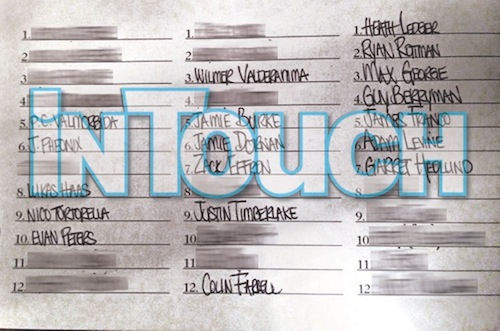 1.
2.
3.
4.
5. P.C. VALMORBIDA
6. J. PHEONIX
8. LUKAS HAAS
9. NICO TORTORELLA
10. EVAN PETERS
11
12.
1.
2.
3. WILMER VALDERAMMA
4.
5. JAMIE BURKE
6. JAMIE DORNAN
7. ZACK EFFRON
8.
9. JUSTIN TIMBERLAKE
10.
11.
12. COLIN FARRELL
1. HEATH LEDGER
2. RYAN ROTTMAN
3. MAX GEORGE
4. GUY BERRYMAN
5. JAMES FRANCO
6. ADAM LEVINE
7. GARRET HEDLUND
8.
9.
10
11
12
INTOUCH